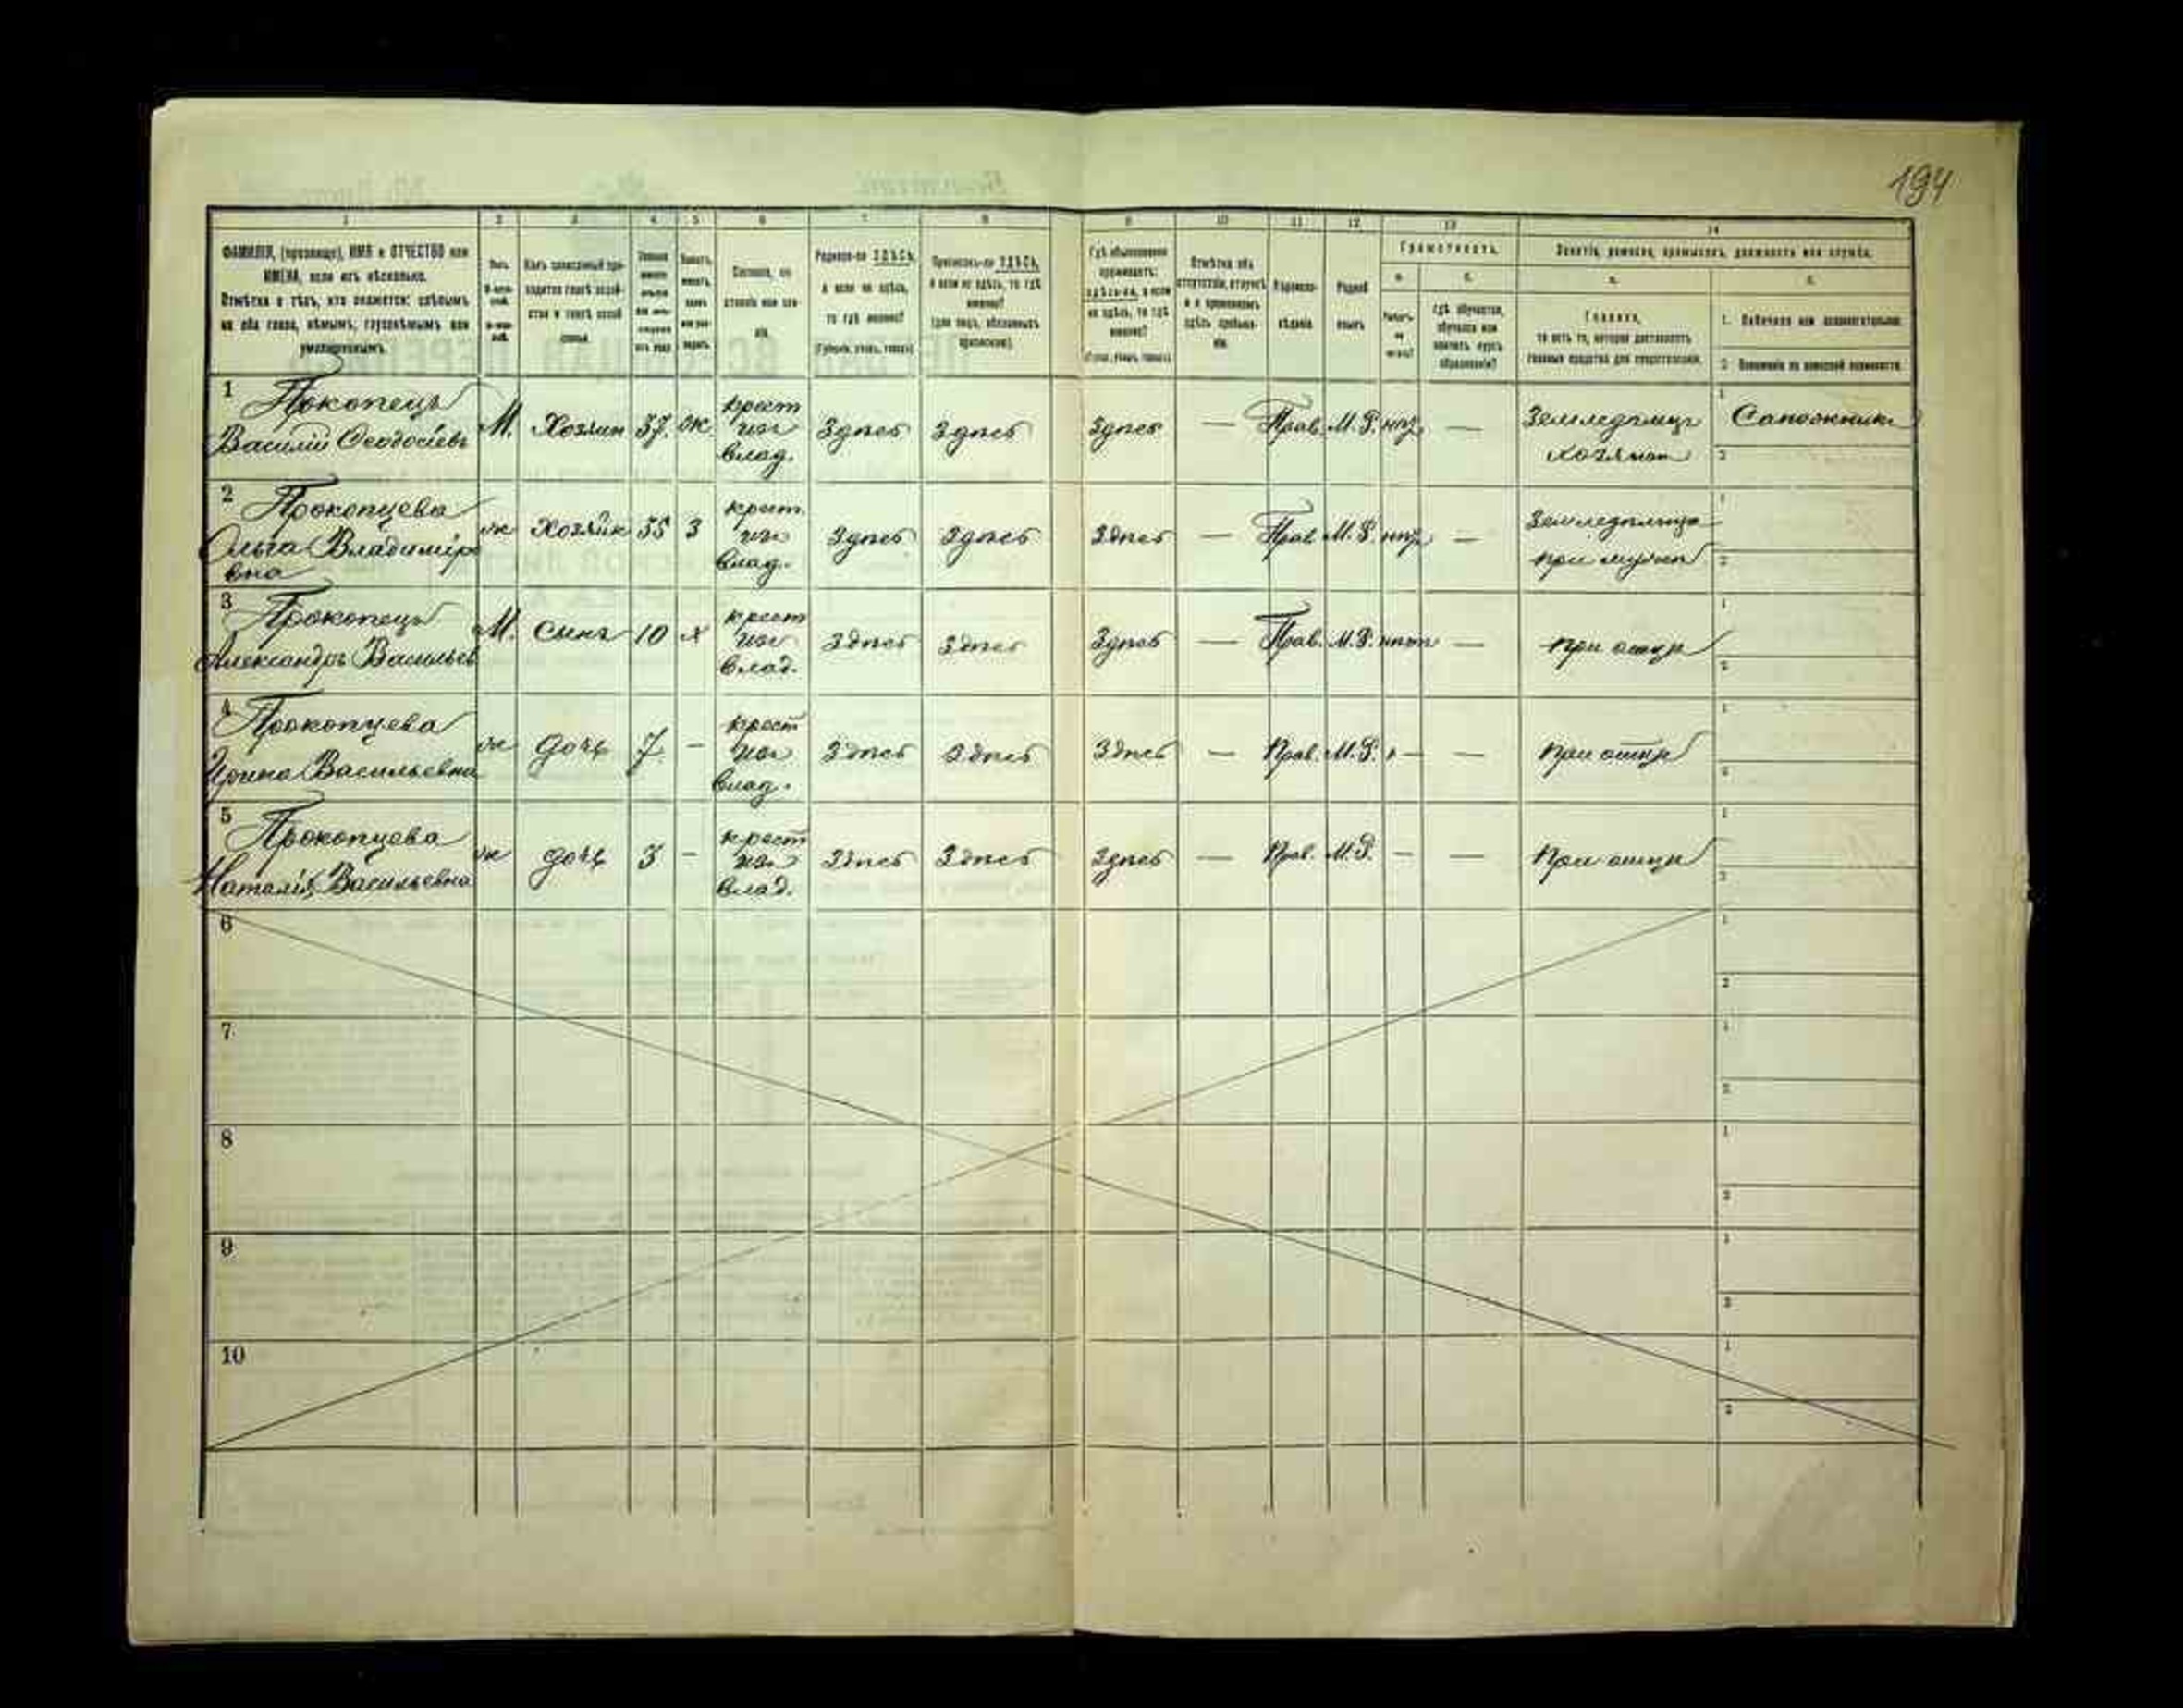 194
1 2 3 4 5 6 7 8 9 10 11 12 13 14
ФАМИЛІЯ, (прозвище), ИМЯ и ОТЧЕСТВО или
ИМЕНА, если ихъ нѣсколько.
Отмѣтка о тѣхъ, кто окажется: слѣпымъ
на оба глаза, нѣмымъ, глухонѣмымъ или
умалишеннымъ.
Сословіе, со-
стояніе или зва-
ніе.
Родился-ли ЗДѢСЬ,
а если не здѣсь,
то гдѣ именно?
(Губернія, уѣздъ, городъ)
Приписанъ-ли ЗДѢСЬ,
а если не здѣсь, то гдѣ
именно?
Гдѣ обыкновенно
проживаетъ:
здѣсь-ли, а если
не здѣсь, то гдѣ
именно?
Отмѣтка объ
отсутствіи, отлучкѣ
и о временномъ
здѣсь пребыва-
ніи.
Вѣроиспо-
вѣданіе.
Родной
языкъ.
Грамотность.
а. б.
Умѣетъ-
ли
читать?
Гдѣ обучается,
обучался или
кончилъ курсъ
образованія?
Занятіе, ремесло, промыселъ, должность или служба.
а. б.
Главное,
то есть то, которое доставляетъ
главныя средства для существованія.
1. Побочное или вспомогательное.
2. Положеніе по воинской повинности.
1 Прокопецъ
Василій Ѳеодосіевъ М. Хозяин 37. ж. крест из влад. Здпсь Здпсь Здпсь — Прав. М.Р. — Земледплецъ хозяинъ 1 Сапожникъ 2
2 Прокопцева
Ольга Владимiро
вна ж Хозяйк 35 З крест. из влад. Здпсь Здпсь Здпсь — Прав М.Р. — при мужп 1 2
3 Прокопецъ
Александръ Васильев М. Сынъ 10 х крест из влад. Здпсь Здпсь Здпсь — Прав. М.Р. нпт — при отцп 1 2
4 Прокопцева
Ирина Васильевна ж дочь 7. - крест из влад. Здпсь Здпсь Здпсь — Прав. М.Р. — — При отцп 1 2
5 Прокопцева
Наталія Васильевна ж дочь 3 - крест из влад. Здпсь Здпсь Здпсь — Прав. М.Р. — — При отцп 1 2
6 1 2
7 1 2
8 1 2
9 1 2
10 1 2